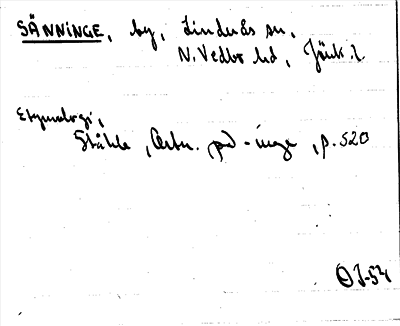 SÄNNINGE, by, Linderås sn,
N. Vedbo hd, Jönk. l.
Etymologi,
Ståhle, Ortn. på -inge, p. 520
ÖJ-54